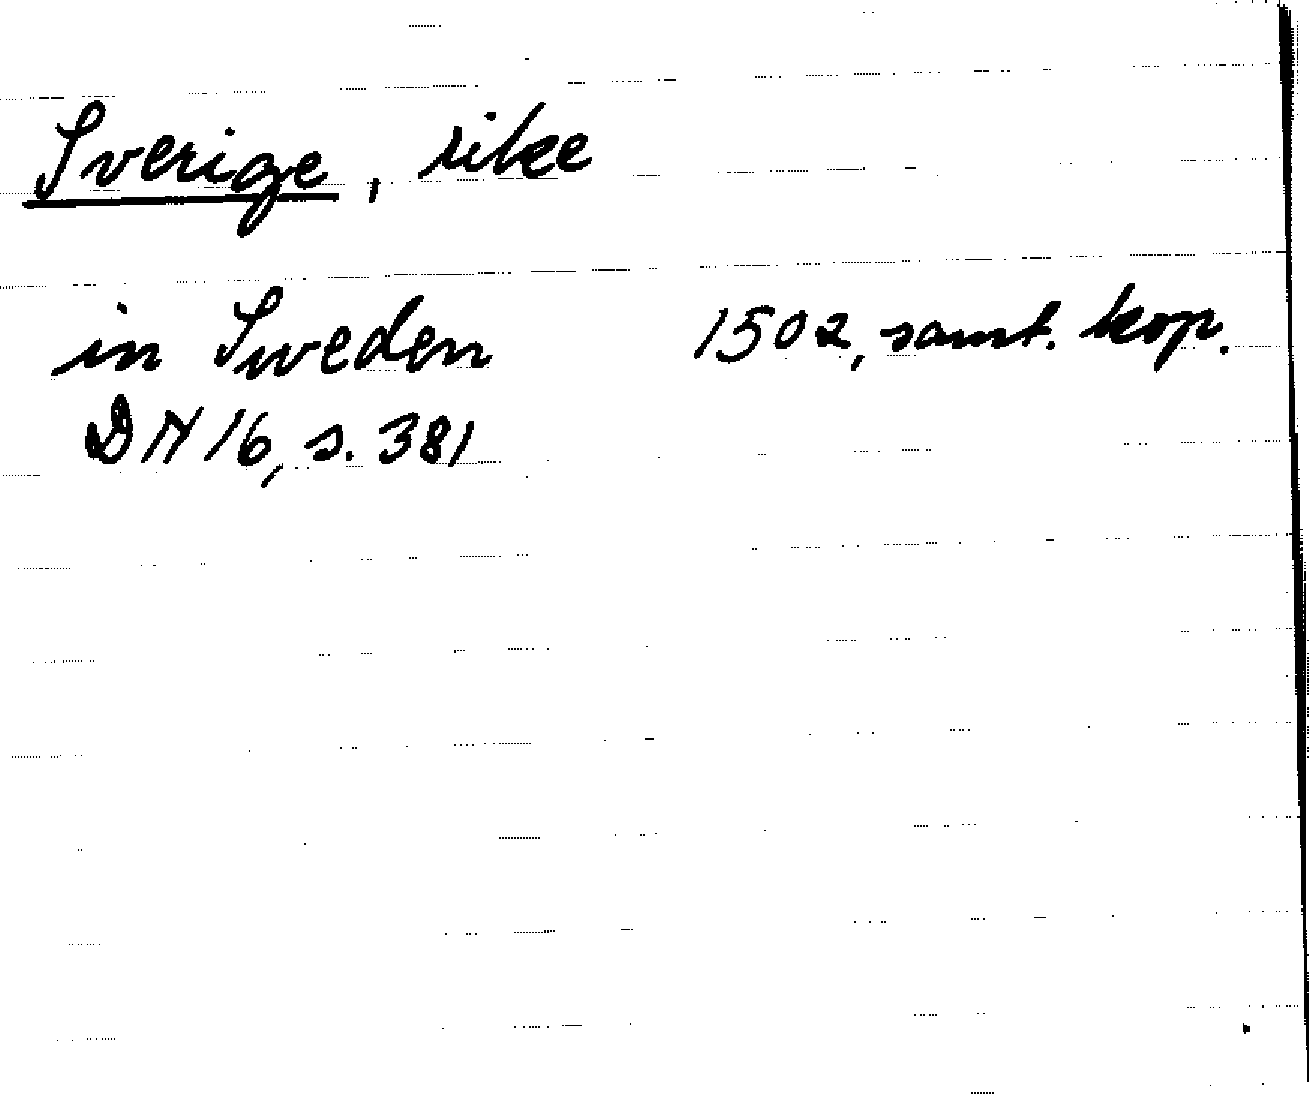 Sverige, rike
in Sweden 1502, samt. kop.
DN 16, s. 381